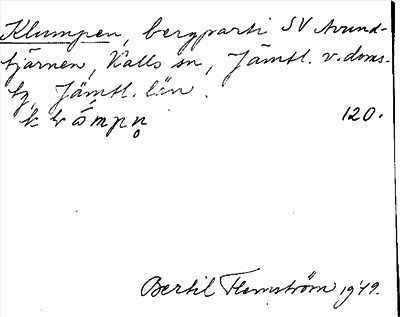 Klumpen, bergparti SV Avund-
tjärnen, Kalls sn, Jämtl. v. doms.
tg, Jämtl. län.
120.
Bertil Flemström 1949.